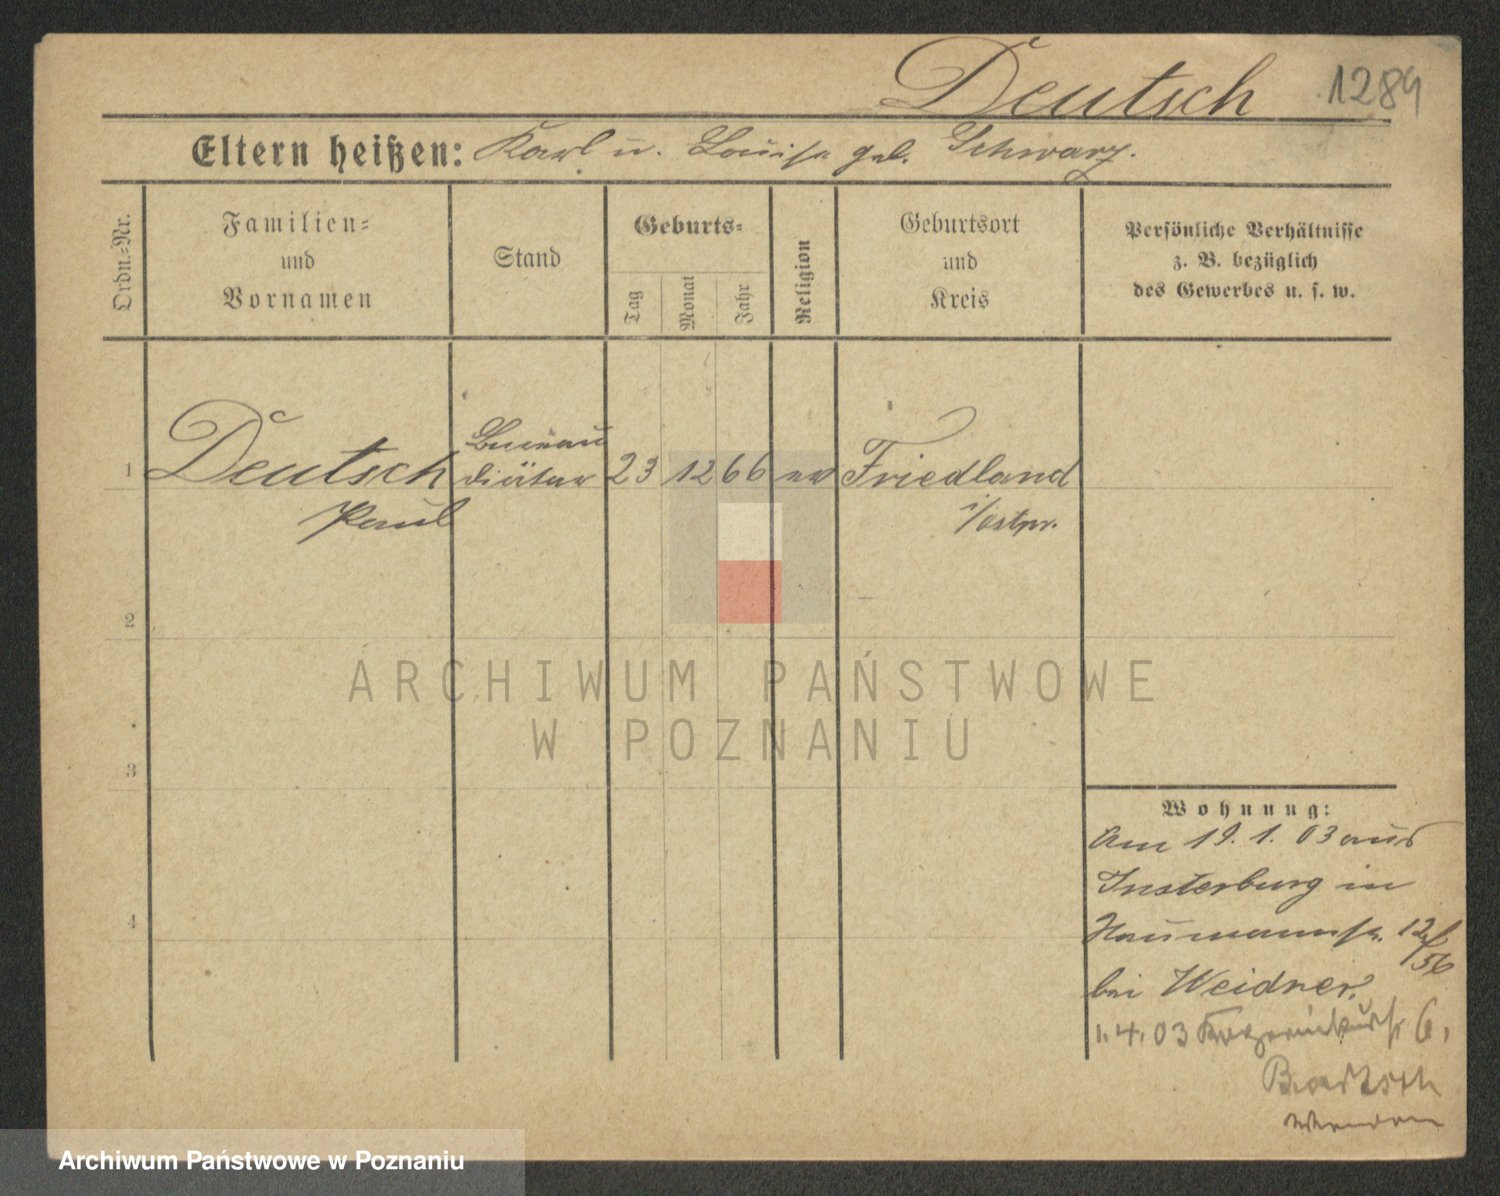 Deutsch 1289
Eltern heißen: Karl u. Louise geb. Schwarz.
Ordn.=Nr.
Familien=
und
Vornamen
Stand
Geburts=
Tag
Monat
Jahr
Religion
Geburtsort
und
Kreis
Persönliche Verhältnisse
z. B. bezüglich
des Gewerbes u. s. w.
Bureau
1 Deutsch diätar 23 12 66 ev Friedland
Paul i/Ostpr.
2
3
4
Wohnung:
Am 19. 1. 03 aus
Insterburg in
Naumannstr. 12/56
bei Weidner.
1.4.03 6,
ARCHIWUM PAŃSTWOWE
W POZNANIU
Archiwum Państwowe w Poznaniu